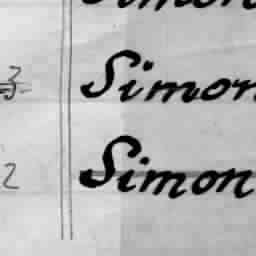 Simon
3 Simon
2 Simon